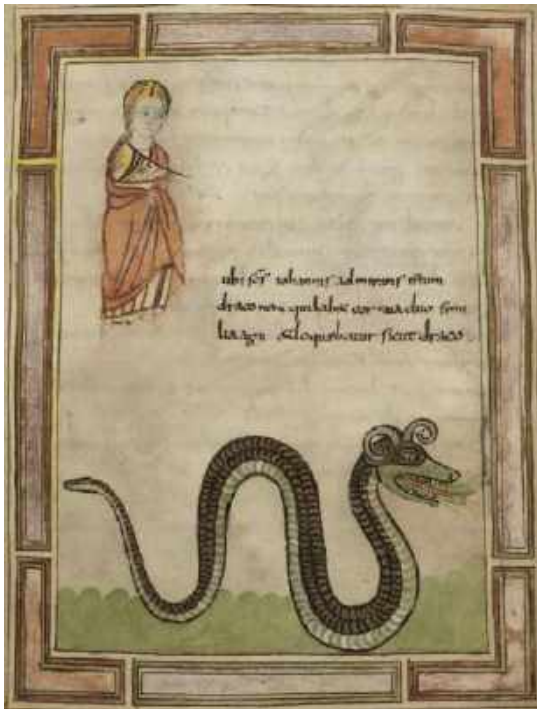 ubi scs iohannis admirans istum
draconem qui habe cornua duo simi
lia agni & loquebatur sicut draco